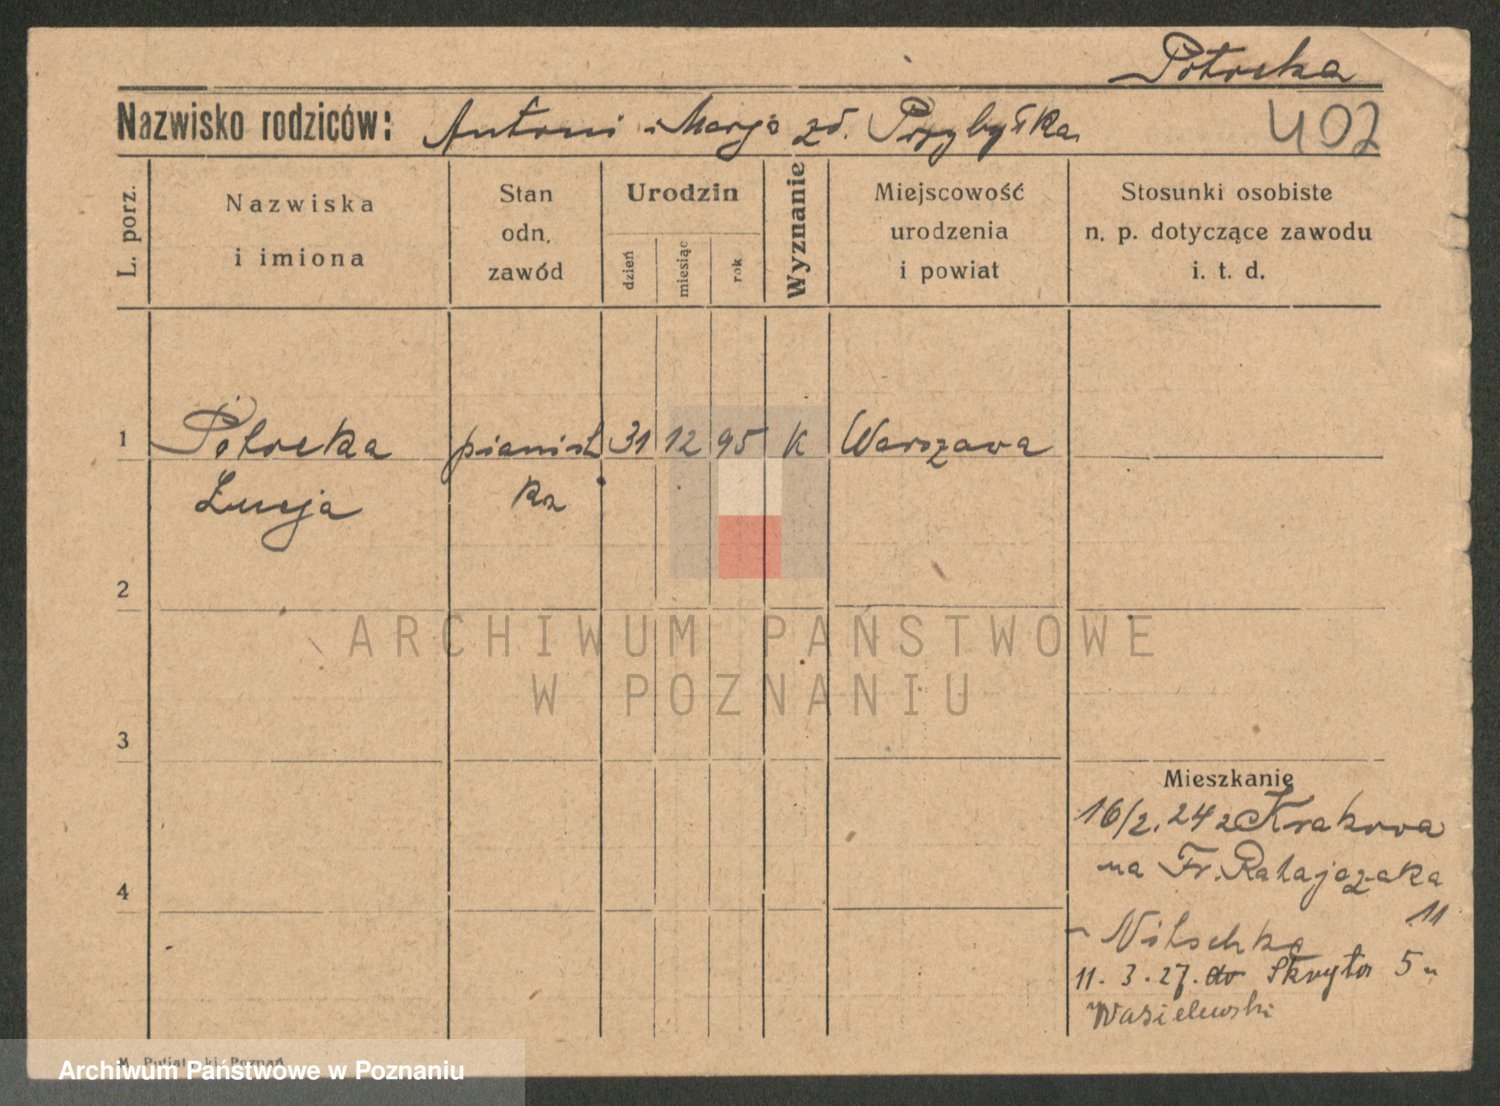 Potocka
Nazwisko rodziców: Antoni i Marja zd. Przybyłka
402
L. porz.
Nazwiska
i imiona
Stan
odn.
zawód
Urodzin
dzień
miesiąc
rok
Wyznanie
Miejscowość
urodzenia
i powiat
Stosunki osobiste
n. p. dotyczące zawodu
i. t. d.
1 Potocka pianist 31 12 95 K Warszawa
Łucja ka
2
ARCHIWUM PAŃSTWOWE
W POZNANIU
3
Mieszkanie
16/2. 24 z Krakowa
na Fr. Ratajczaka
4
11
- Nitschke
11. 3. 27. do Skryta 5 u
Wasielewski
Poznań
Archiwum Państwowe w Poznaniu